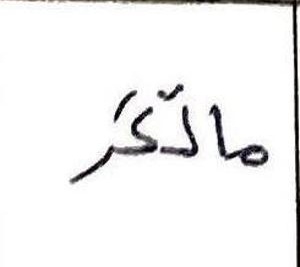 ماذكر